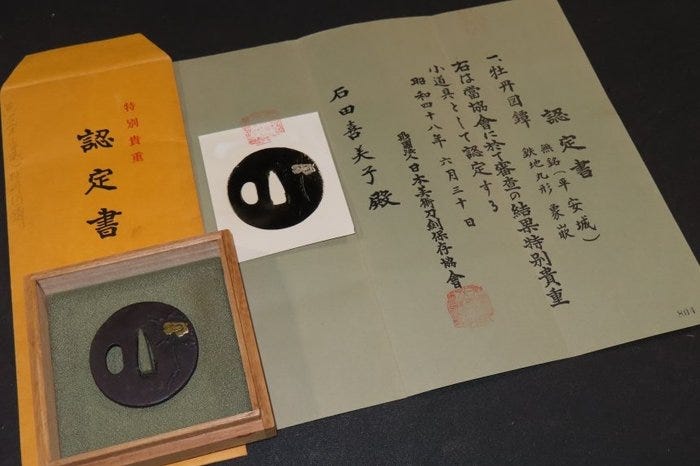 特別貴重
認定書
認定書
一、牡丹図鐔
無銘(平安城)
鉄地丸形 象嵌
右は當協會に於て審査の結果特別貴重
小道具として認定する
昭和四十八年 六月三十日
財團法人日本美術刀剣保存協會
石田喜美子殿
804